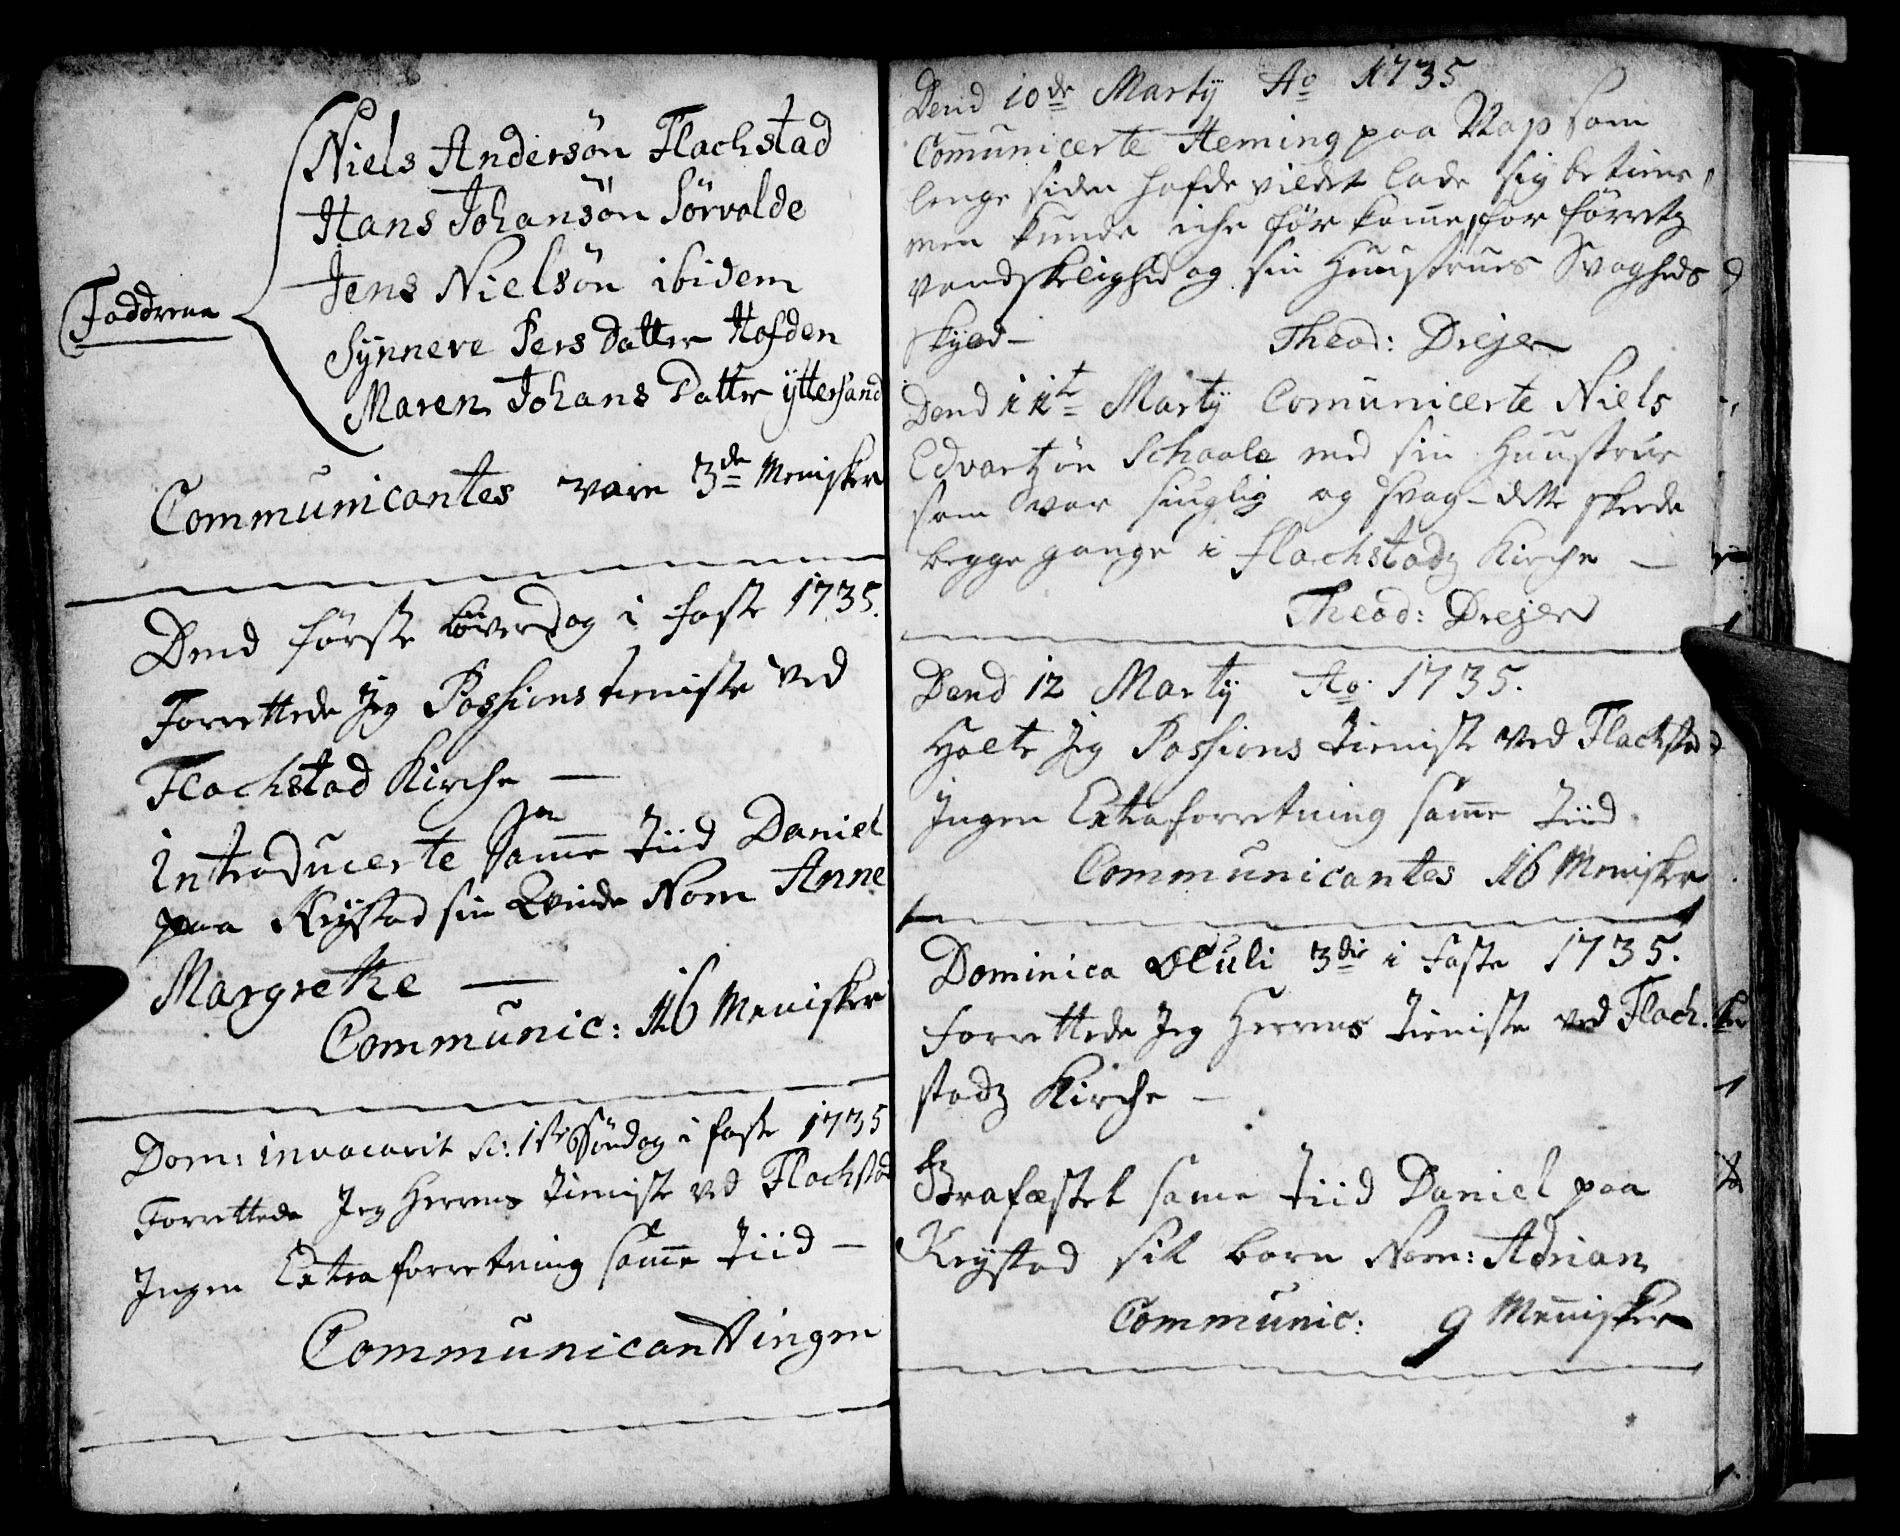 Niels Andersøn Flachstad
Hans Johansøn Sørvolde
Faddrene
Jens Nielsøn ibidem
Sÿnneve Pers Datter Hofden
Maren Johans Datter ÿttersand
Communicantes vare 3de Menisker
Dend første Løverdag i faste 1735.
Forrettede Jeg Passions tieniste ved
Flachstad Kirche —
Introducerte Jeg
samme Tiid Daniel
paa Krÿstad sin Qvinde Nom Anne
Margrethe —
Communic: 16 Menisker
Dom: invocavit sc: 1ste Søndag i faste 1735
Forrettede Jeg Herrens tieniste ved Flachstad
Ingen Extra forretning samme Tiid —
Communicant Wingen
Dend 10de Martÿ Ao 1735
Communicerte Heming paa Nap som
lenge siden hafde vildet lade sig betiene,
men kunde iche før komme, for førretz
vandskelighed og sin Huustrues Svagheds
skÿld —
Theod: Drejer
Dend 11te Martÿ Comunicerte Niels
Edvartzøn Schaale med sin Huustrue
som var siuglig og svag — dette skeede
begge gange i Flachstadz Kirche —
Theod: Drejer
Dend 12 Martÿ Ao. 1735.
Holte Jeg Passions Tieniste ved Flachstad
Ingen Extraforretning samme Tiid.
Communicantes 16 Menisker
Dominica Oculi 3die i faste 1735.
Forrettede Jeg Herrens Tieniste ved Flach-
stadz Kirche —
Grafæstet same Tiid Daniel paa
Krÿstad sit barn Nom: Adrian
Communic: 9 Mennisker